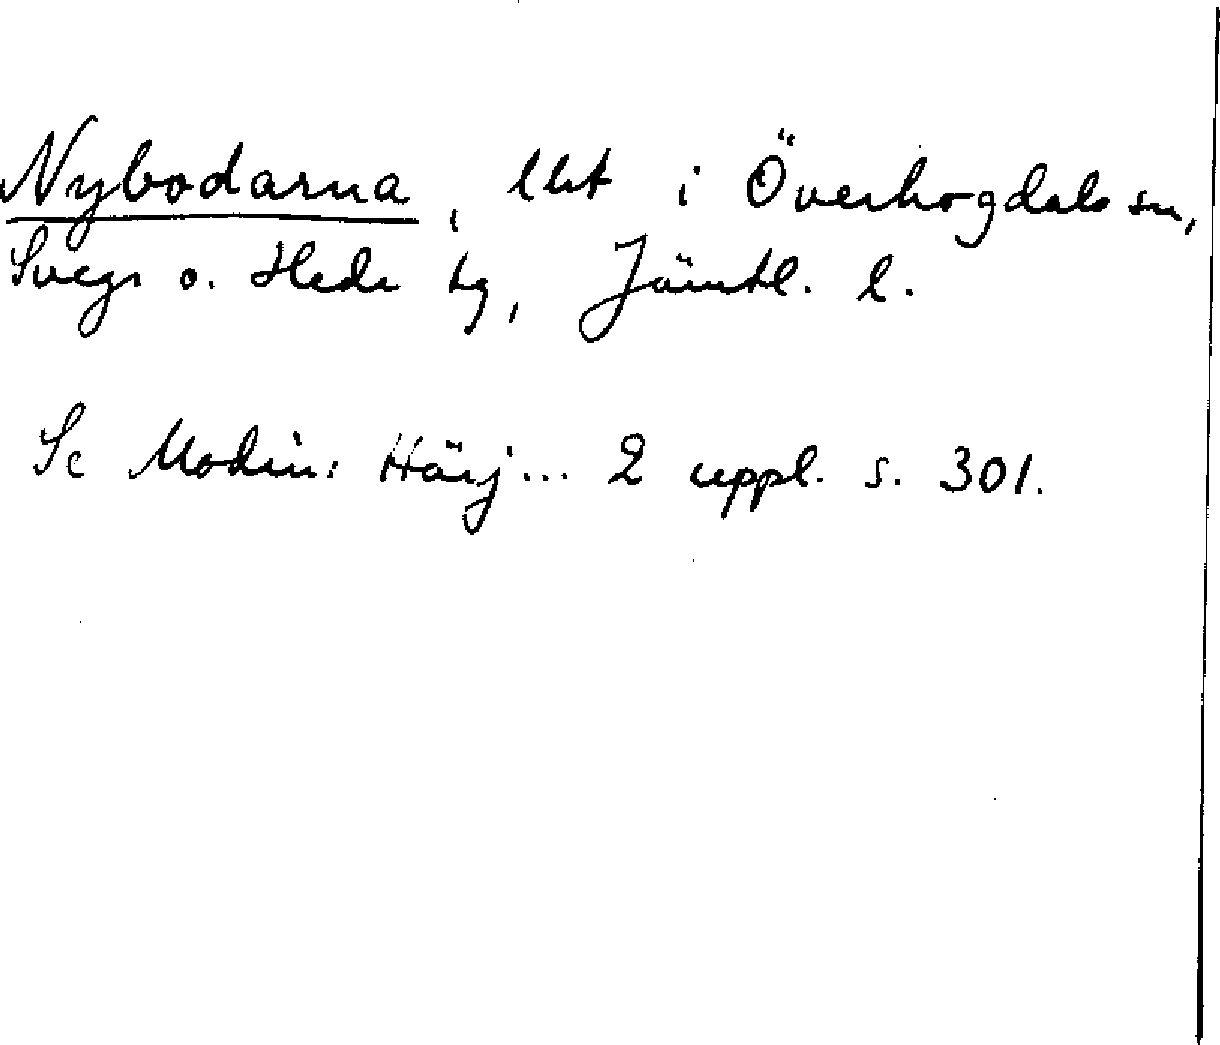 Nybodarna, lht i Överhogdals sn,
Svegs o. Hede tg, Jämtl. l.
Se Modin: Härj... 2 uppl. s. 301.